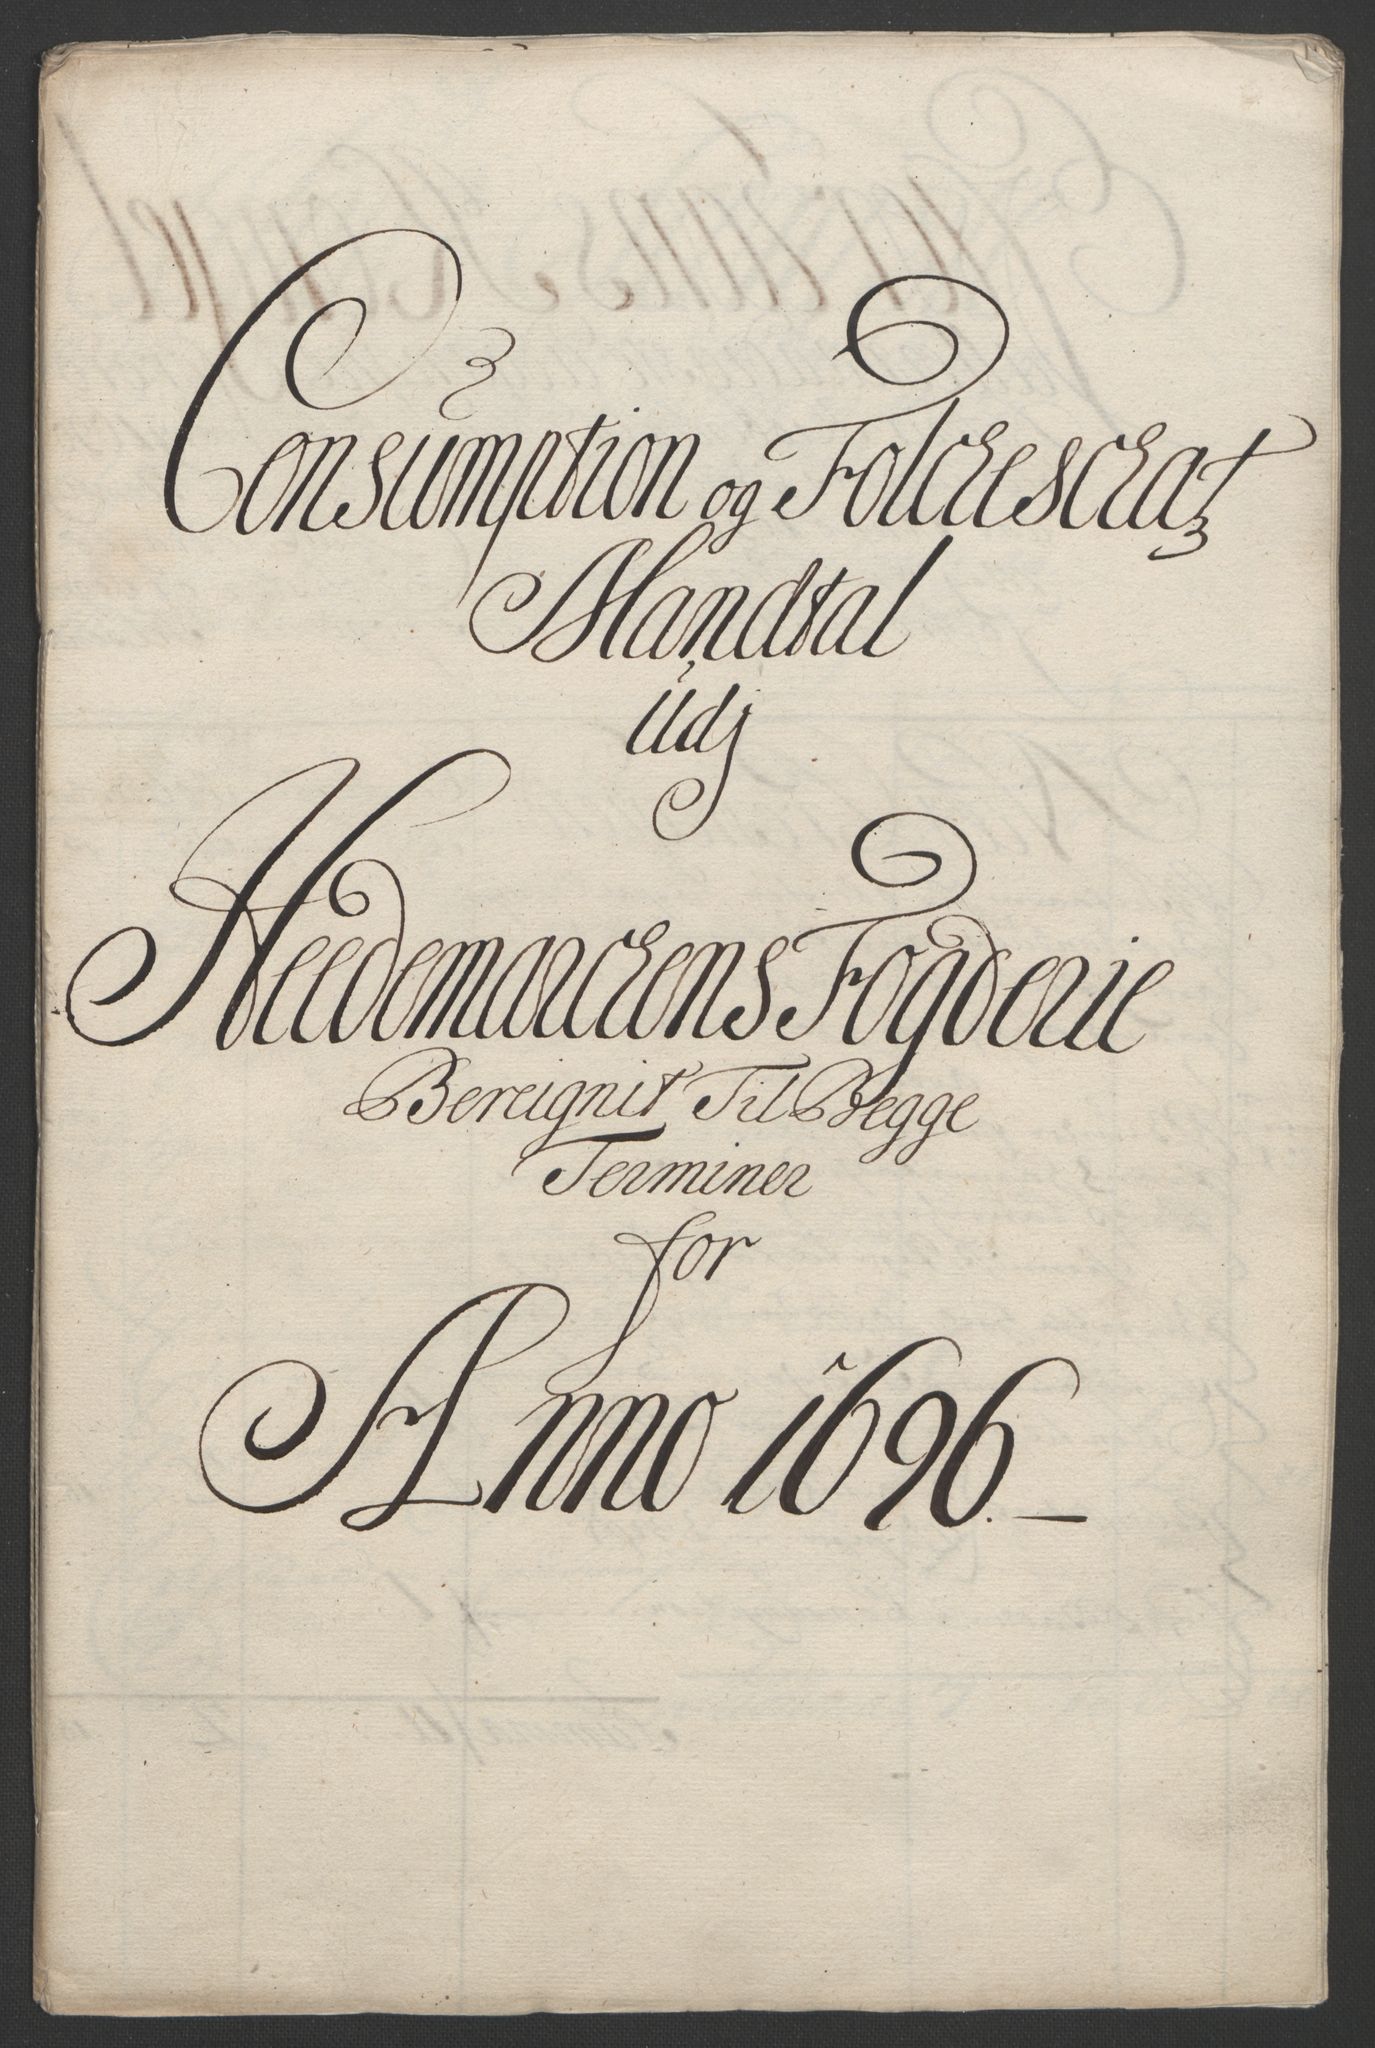 Consumption og Folckeschat
Mandtal
Udj
Heedemarckens Fogderie
Bereignit Til Begge
Terminer
for
Anno 1696